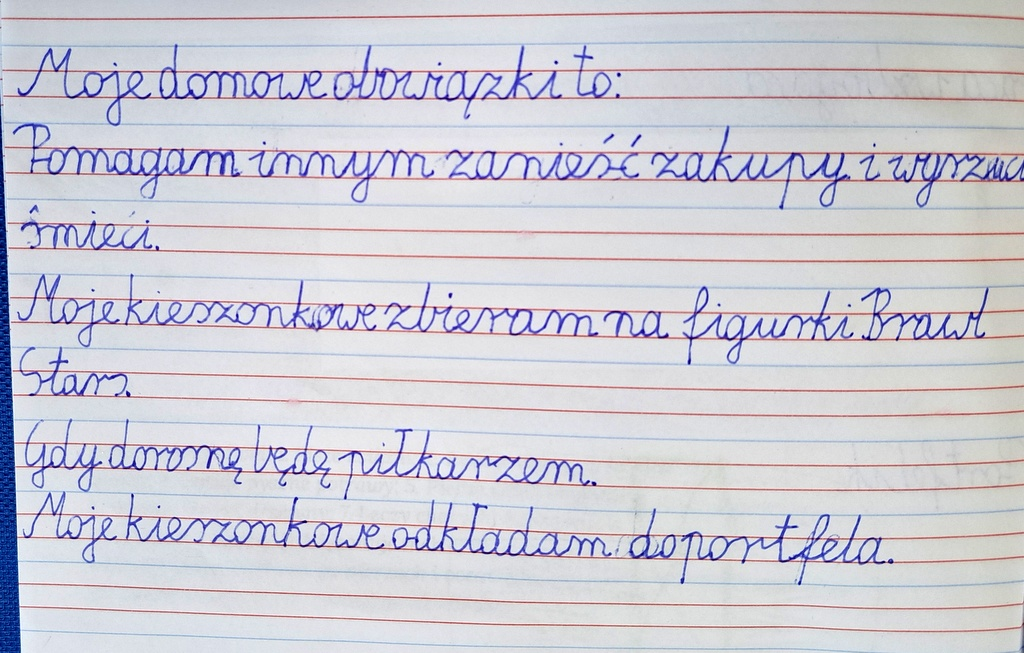 Moje domowe obowiązki to:
Pomagam innym zanieść zakupy i
śmieci.
Moje kieszonkowe zbieram na figurki Brawl
Stars.
Gdy dorosnę będę piłkarzem.
Moje kieszonkowe odkładam do portfela.